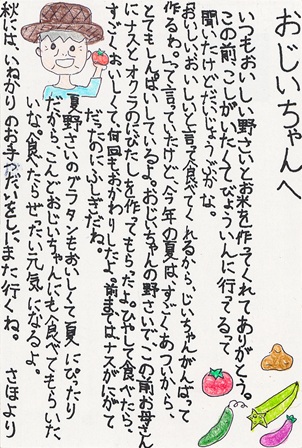 おじいちゃんへ
いつもおいしい野さいとお米を作ってくれてありがとう。
この前、こしがいたくてびょういんに行ってるって
聞いたけどだいじょうぶかな。
「おいしいおいしいと言って食べてくれるから、じいちゃんがんばって
作るわ。」って言っていたけど、今年の夏はすごくあついから、
とてもしんぱいしているよ。おじいちゃんの野さいで、この前お母さん
にナスとオクラのにびたしを作ってもらったよ。ひやして食べたら、
すごくおいしくて、何回もおかわりしたよ。前まではナスがにがて
だったのにふしぎだね。
夏野さいのグラタンもおいしくて夏にぴったり
だから、こんどおじいちゃんにも食べてもらいた
いな。食べたらぜったい元気になるよ。
秋には、いねかりのお手つだいをしに、また行くね。 さほより